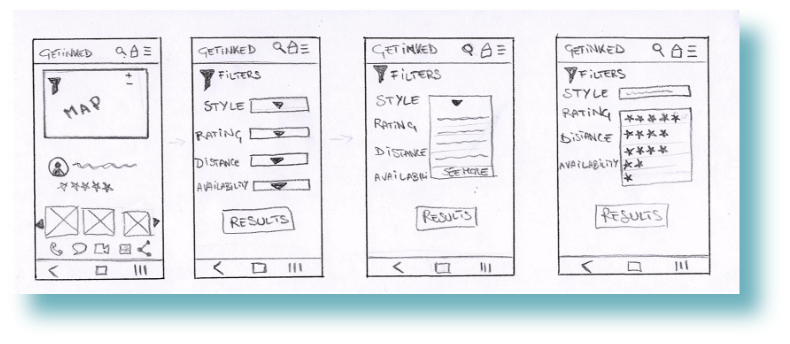 GETINKED
MAP
GETINKED
FILTERS
STYLE
RATING
DISTANCE
AVAILABILITY
RESULTS
GETINKED
FILTERS
STYLE
RATING
DISTANCE
AVAILABILI
SEE MORE
RESULTS
GETINKED
FILTERS
STYLE
RATING
DISTANCE
AVAILABILITY
RESULTS